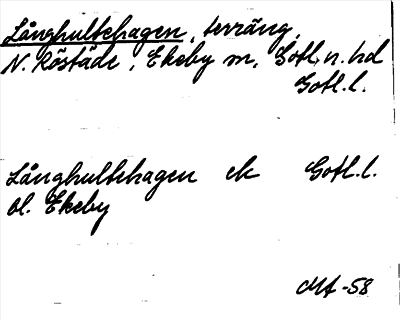 Långhultehagen, terräng,
N. Röstäde, Ekeby sn, Gotl. n. hd
Gotl. l.
Långhultehagen ek Gotl. l.
bl. Ekeby
-58